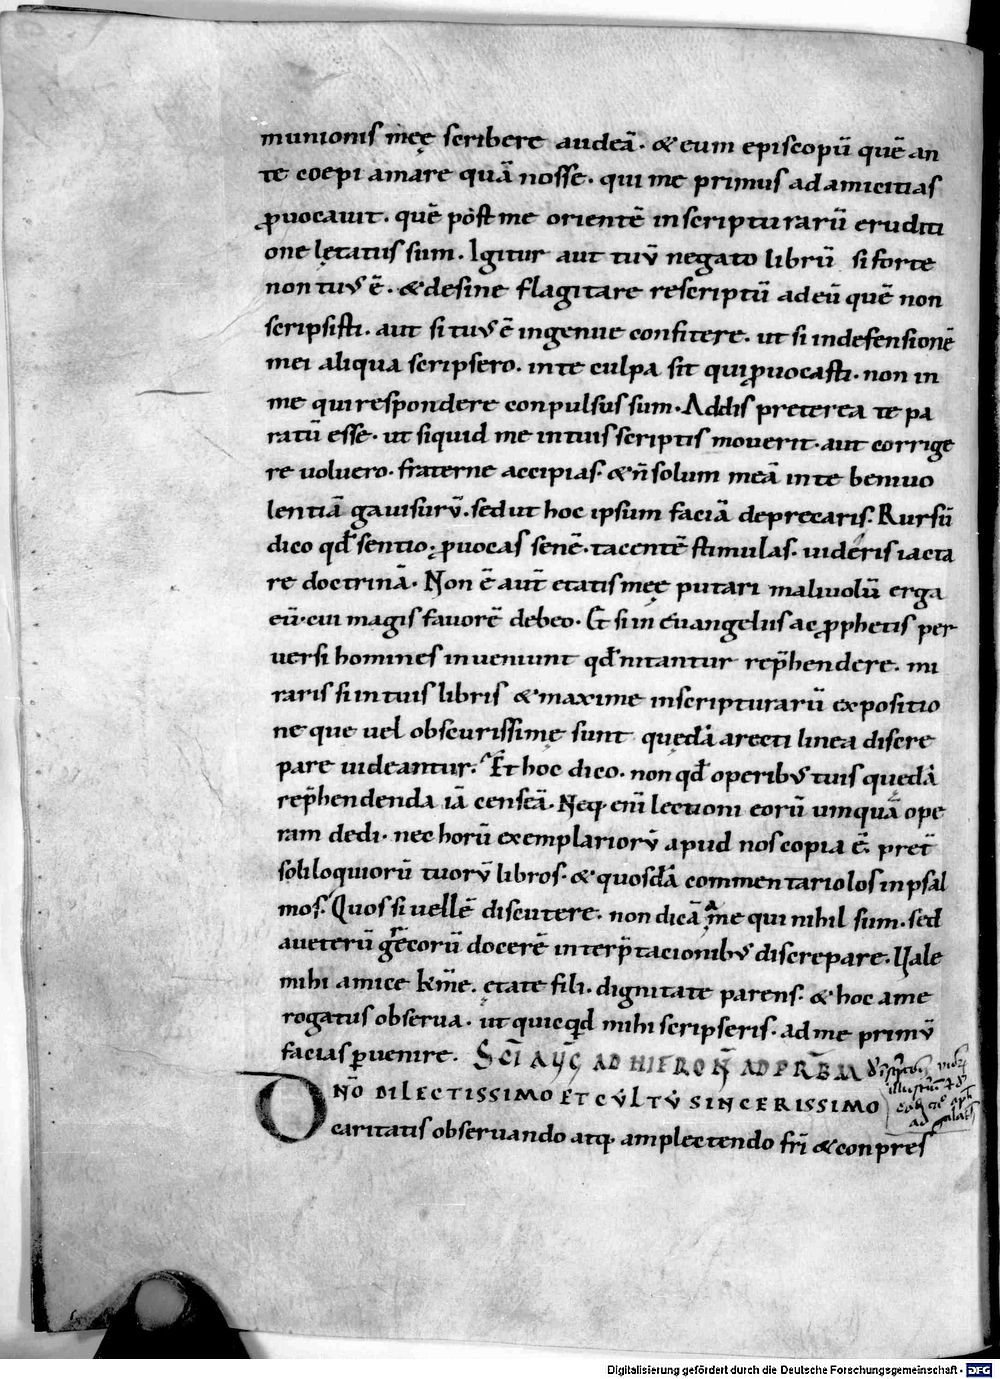 munionis meę scribere audeā. & eum episcopū quē an
te coepi amare quā nosse. qui me primus ad amicitias
ꝓuocauit. quē post me orientē in scripturarū eruditi
one lętatus sum. Igitur aut tuū negato librū si forte
non tuus ē. & desine flagitare rescriptū ad eū quē non
scripsisti. aut si tuus ē ingenue confitere. ut si in defensionē
mei aliqua scripsero. in te culpa sit qui ꝓuocasti. non in
me qui respondere conpulsus sum. Addis preterea te pa
ratū esse. ut siquid me in tuis scriptis mouerit. aut corrige
re uoluero. fraterne accipias. & n̄ solum meā in te beniuo
lentiā gauisurū. sed ut hoc ipsum faciā deprecaris. Rursū
dico qđ sentio. ꝓuocas senē. tacentē stimulas. uideris iacta
re doctrinā. Non ē aut̄ etatis meę putari maliuolū erga
eū. cui magis fauorē debeo. Et si in euangeliis ac ꝓphetis per
uersi homines inueniunt qđ nitantur rep̄hendere. mi
raris si in tuis libris & maxime in scripturarū expositio
ne que uel obscurissime sunt quędā a recti linea discre
pare uideantur. Et hoc dico. non qđ operibus tuis quędā
rep̄hendenda iā censeā. Neq. eni lectioni eorū umquā ope
ram dedi. nec horū exemplariorū apud nos copia ē. pret̄
soliloquiorū tuorū libros. & quosdā commentariolos in psal
mos. Quos si uellē discutere. non dicā a me qui nihil sum. sed
a ueterū grecorū docerē interp̄tacionibus discrepare. Uale
mihi amice km̄e. ętate fili. dignitate parens. & hoc a me
rogatus obserua. ut quicqđ mihi scripseris. ad me primū
facias ꝑuenire. SCI AUG AD HIERON AD PRBM
DNO DILECTISSIMO ET CULTU SINCERISSIMO
caritatis obseruando atq. amplectendo fr̄i & conpres